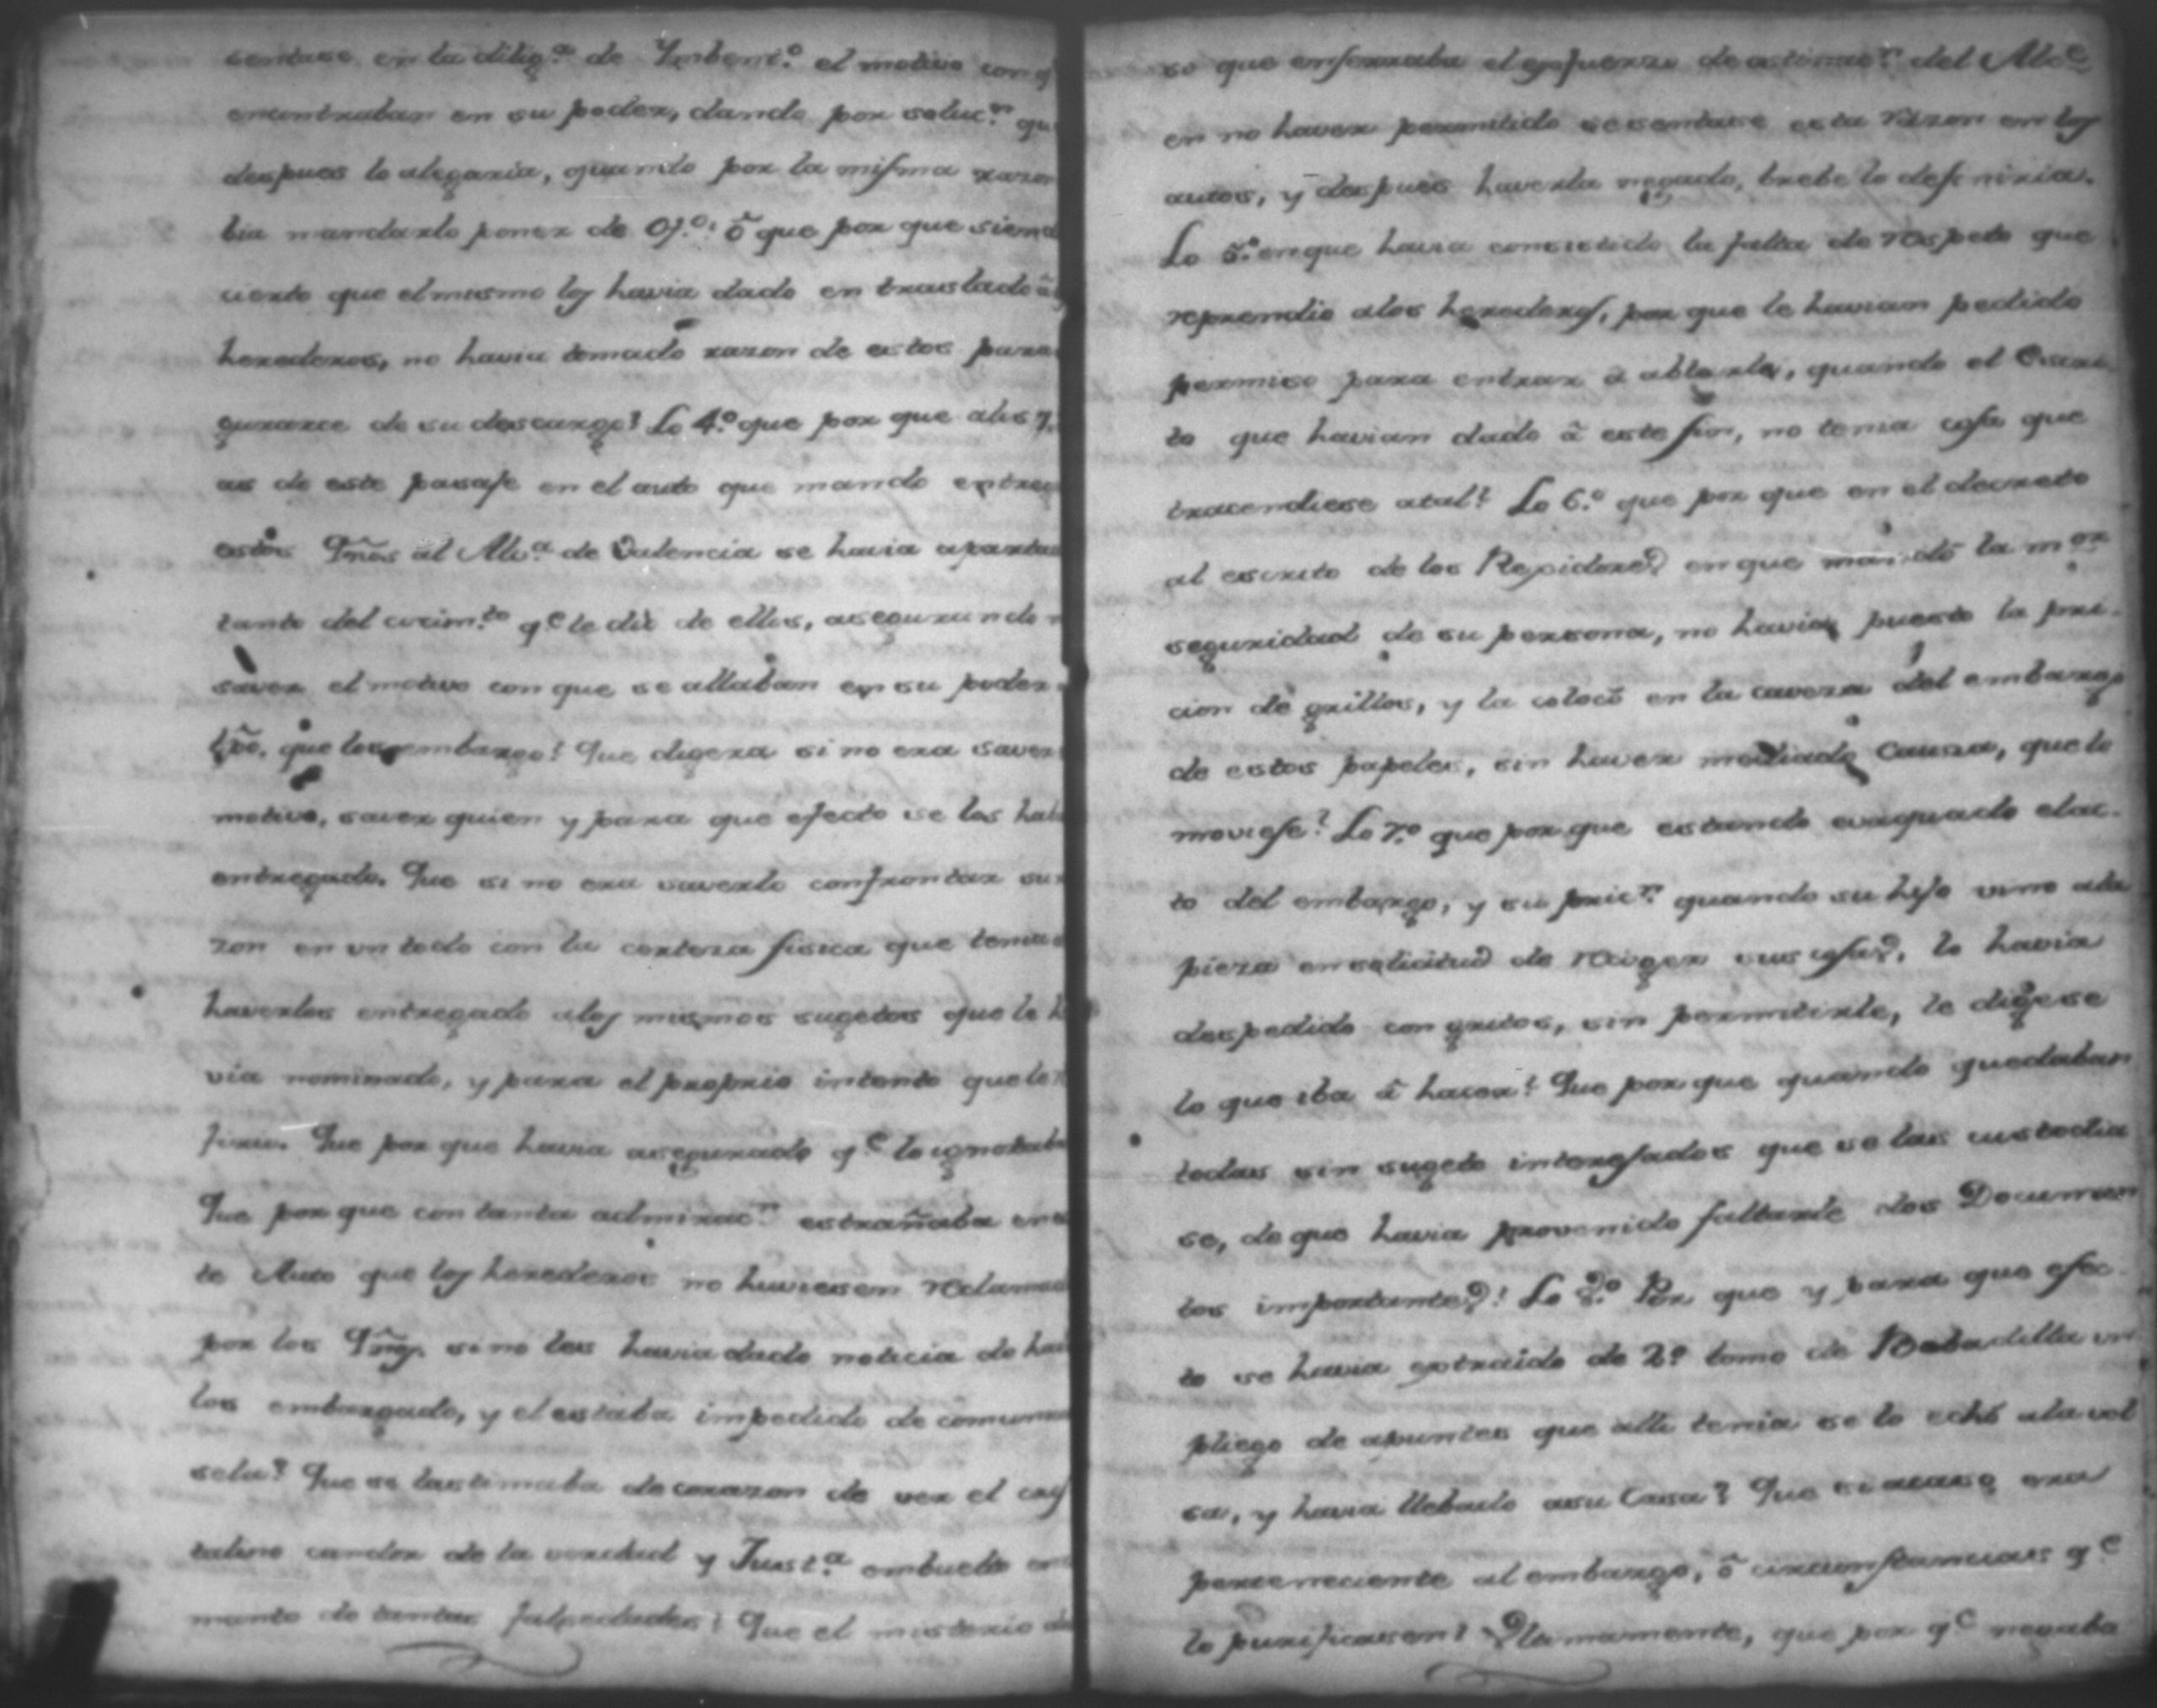 sentase en la dilig.ª de Ymbent.º el motivo con q
encontraban en su poder, dando por soluc.n qu
despues lo alegaria, quando por la misma razon
bia mandarlo poner de of.º: ô que por que siend
cierto que el mismo los havia dado en traslado â
herederos, no havia tomado razon de estos para
gurarce de su descargo? Lo 4.º que por que
as de este pasaje en el auto que mando entre
estos al Alc.e de Valencia se havia aparta
tante del q.e le dió de ellos, asegurando
saver el motivo con que se allaban en su poder
que los embargo? Que digera si no era saver
motivo, saver quien y para que efecto se los hab
entregado. Que si no era saverlo confrontar su
zon en un todo con la certeza fisica que tenia
haverlos entregado a los mismos sugetos que le h
via nominado, y para el proprio intento que le
firiu. Que por que havia asegurado q.e lo ignoraba
Que por que con tanta admirac.n estrañaba en
te Auto que los herederos no huviesen reclamad
por los si no les havia dado noticia de hav
los embargado, y el estaba impedido de comuni
sela? Que se lastimaba de corazon de ver el cris
talino candor de la verdad y Just.ª embuelto en
manto de tantas falsedades? Que el misterio de
so que enserraba el esfuerzo de del Alc.e
en no haver permitido se sentase esta razon en los
autos, y despues haverla negado, brebe lo definiria.
Lo 5.º en que havia concistido la falta de respeto que
reprendio a los herederos, por que le havian pedido
permiso para entrar â ablarle, quando el Escri
to que havian dado â este fin, no tenia cosa que
tracendiese a tal? Lo 6.º que por que en el decreto
al escrito de los Regidores en que mandó la m.or
seguridad de su persona, no havia puesto la pri-
cion de grillos, y la colocó en la caveza del embargo
de estos papeles, sin haver mediado Causa, que lo
moviese? Lo 7.º que por que estando evaquado el ac-
to del embargo, y su pric.n quando su hijo vino a la
pieza en solicitud de recoger sus cosas, lo havia
despedido con gritos, sin permitirle, le digese
lo que iba â hacer? Que por que quando quedaban
todas sin sugeto interesados que se las custodia
se, de que havia provenido faltarle dos Documen
tos importantes? Lo 8.º Por que y para que efec
to se havia extraido de 2.º tomo de Bobadilla un
pliego de apuntes que alli tenia se lo echó a la vol
sa, y havia llebado a su Casa? Que si acaso era
perteneciente al embargo, ô circunstancias q.e
lo purificasen? Ultimamente, que por q.e negaba